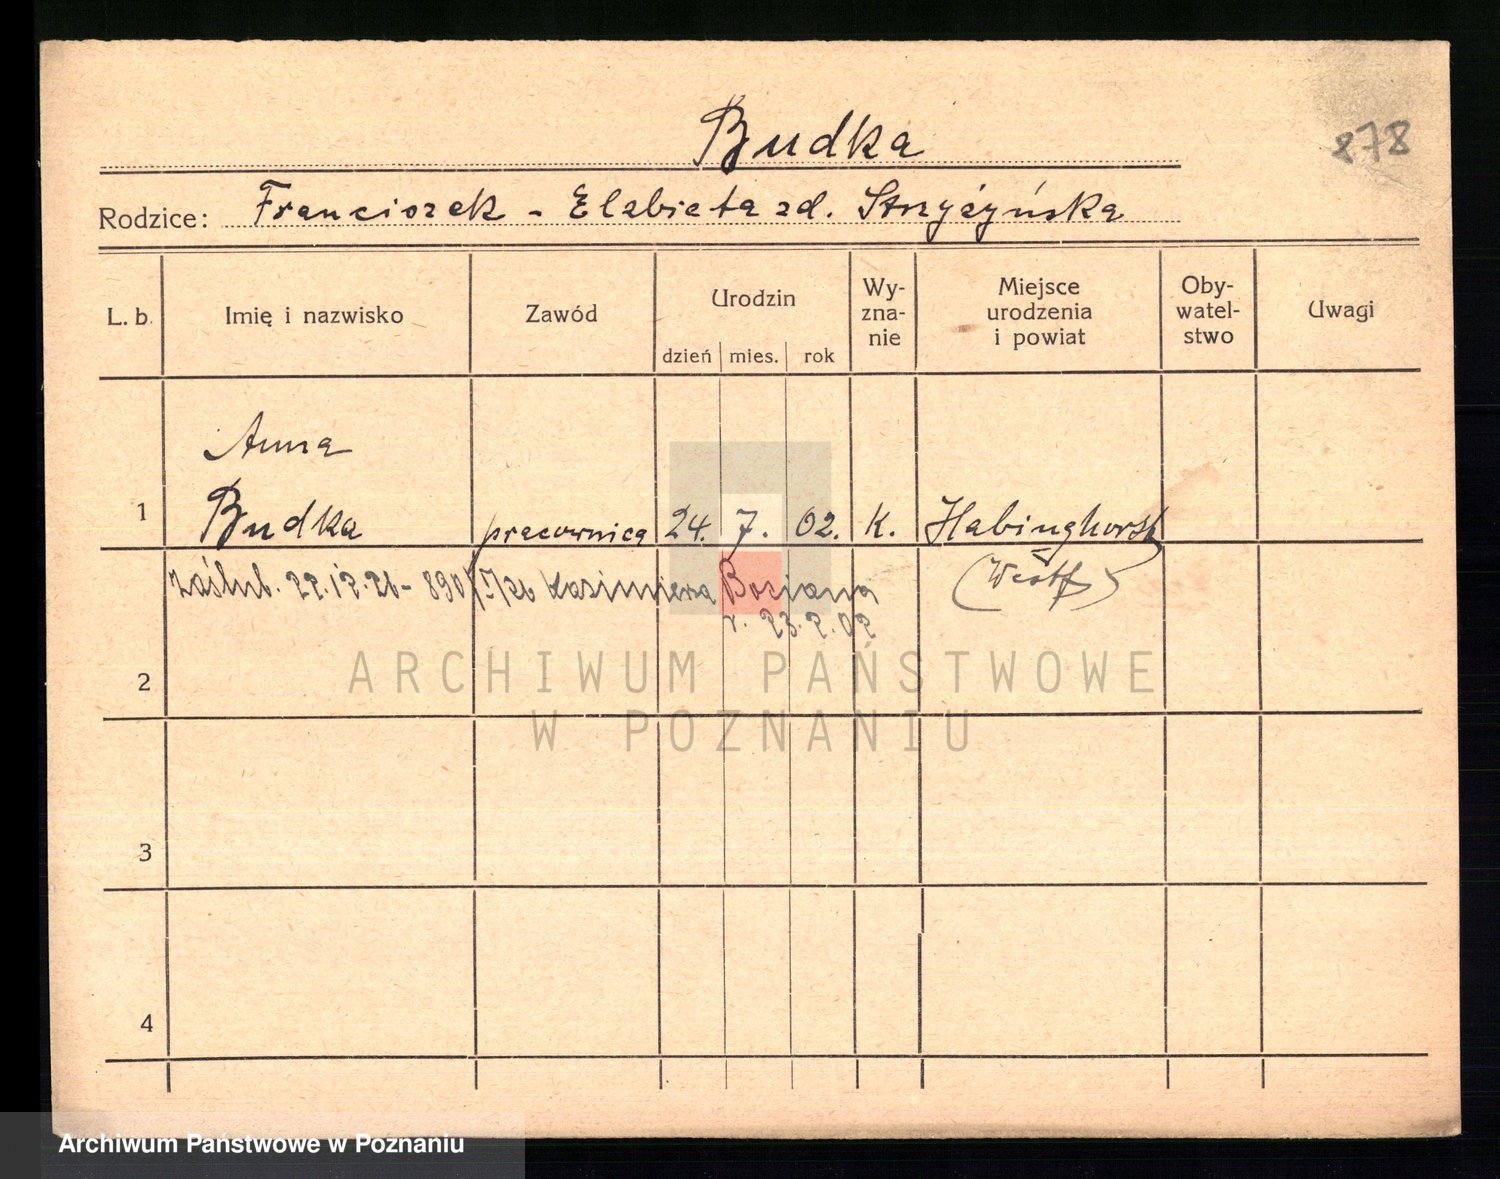 Budka
878
Rodzice: Franciszek - Elzbieta zd. Strzyżyńska
L. b. Imię i nazwisko Zawód Urodzin dzień mies. rok Wy-zna-nie Miejsce urodzenia i powiat Oby-watel-stwo Uwagi
Anna
1 Budka pracownica 24. 7. 02. K. Habinghorst
(Westf)
zaślub. 22.12.26 - 890/I/26 Kazimierza Bociana
r. 23.2.02
2
ARCHIWUM PAŃSTWOWE
W POZNANIU
3
4
Archiwum Państwowe w Poznaniu